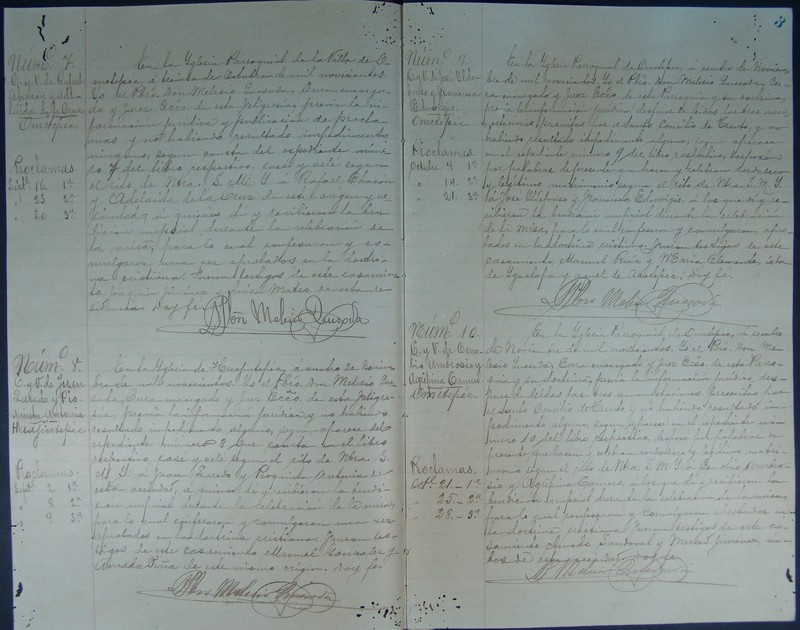 Núm. 7.
C. y V. de Rafael
Chacón y Ade-
laida de la Cruz
Ometepec
Proclamas.
Sept. 16 1ª
" 23 2ª
" 30 3ª
En la Yglesia Parroquial de la Villa de O-
metepec, á treinta de Octubre de mil novecientos
Yo el Pbro. Don Melecio Quesada, Cura encarga-
do y Juez Ecco de esta feligresía previa la in-
formación jurídica y publicación de procla-
mas y no habiendo resultado impedimento
ninguno, segun consta del expediente núme-
ro 7 del libro respectivo, casé y velé segun
el rito de Ntra. S. M. Y. á Rafael Chacón
y Adelaida de la Cruz de este origen y ve-
cindad, á quienes dí y recibieron la ben-
dición nupcial durante la celebración de
la misa, para lo cual confesaron y co-
mulgaron una vez aprobados en la doctri-
na cristiana. Fueron testigos de este casamien-
to
Doy fe
Melecio Quesada
Núm. 8.
C. y V. de Juan
Huajintepec
Proclamas.
Sept. 2 1ª
" 8 2ª
" 9 3ª
En la Yglesia de Huajintepec, á ocho de Noviem-
bre de mil novecientos. Yo el Pbro. Don Melecio Que-
sada, Cura encargado y Juez Ecco de esta feligre-
sía, previa la información jurídica y no habiendo
resultado impedimento alguno, segun aparece del
expediente número 8 que consta en el libro
respectivo, casé y velé segun el rito de Ntra. S.
M. Y. á Juan y Antonia de
esta vecindad, á quienes dí y recibieron la bendi-
cion nupcial durante la celebración de la misa,
para lo cual confesaron y comulgaron una vez
aprobados en la doctrina cristiana. Fueron tes-
tigos de este casamiento Manuel Gonzalez y
Amada Peña de este mismo origen. Doy fe.
Melecio Quesada
3
Núm. 9.
C. y V. de José Ilde-
fonso y Francisca
Eduvigis
Ometepec
Proclamas.
Octubre 7 1ª
" 14 2ª
" 21 3ª
En la Yglesia Parroquial de Ometepec á ocho de Noviem-
bre de mil novecientos. Yo el Pbro. Don Melecio Quesada Cu-
ra encargado y Juez Ecco de esta Parroquia y su doctrina,
previa la información jurídica después de leidas las tres amo-
nestaciones prescritas por el Santo Concilio de Trento, y no
habiendo resultado impedimento alguno, segun aparece
en el expediente número 9 del libro respectivo,
por palabras de presente que hacen y celebran verdadero
y legítimo matrimonio segun el rito de Ntra S. M. Y.
á José Ildefonso y Francisca Eduvigis, á los que dí y re-
cibieron la bendicion nupcial durante la celebracion
de la misa, para lo cual confesaron y comulgaron, apro-
bados en la doctrina cristiana. Fueron testigos de este
casamiento, Manuel Ruiz y María Clemente, esta
de Igualapa y aquel de Doy fe
Melecio Quesada
Núm. 10.
C. y V. de Emi-
lio Ambrosio y
Agripina
Ometepec
Proclamas.
Oct. 21 - 1ª
" 25 - 2ª
" 28 - 3ª
En la Yglesia Parroquial de Ometepec, á
de Noviembre de mil novecientos. Yo el Pbro. Don Me-
lecio Quesada, Cura encargado y Juez Ecco de esta Parro-
quia y su doctrina, previa la información jurídica des-
pues de leidas las tres amonestaciones prescritas por
el Santo Concilio de Trento, y no habiendo resultado im-
pedimento alguno, segun aparece en el expediente nú-
mero 10 del libro respectivo, por palabras de
presente que hacen y celebran verdadero y legítimo matri-
monio segun el rito de Ntra S. M. Y. á Emilio Ambro-
sio y Agripina á los que dí y recibieron la
bendicion nupcial durante la celebracion de la misa,
para lo cual confesaron y comulgaron aprobados en
la doctrina cristiana. Fueron testigos de este ca-
samiento Amado Sandoval y Merced Jimenez, am-
bos de esta vecindad. Doy fe
Melecio Quesada